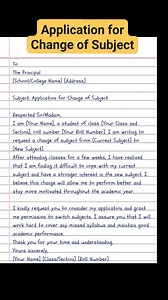 Application for
Change of Subject
To
The Principal
[School/College Name] [Address]
Subject: Application for Change of Subject
Respected Sir/Madam,
I am [Your Name], a student of class [Your Class and
Section], roll number [Your Roll Number]. I am writing to
request a change of subject from [Current Subject] to
[New Subject].
After attending classes for a few weeks, I have realized
that I am finding it difficult to cope with my current
subject and have a stronger interest in the new subject. I
believe this change will allow me to perform better and
stay more motivated throughout the academic year.
I kindly request you to consider my application and grant
me permission to switch subjects. I assure you that I will
work hard to cover any missed syllabus and maintain good
academic performance.
Thank you for your time and understanding.
Yours sincerely,
[Your Name] [Class/Section] [Roll Number]